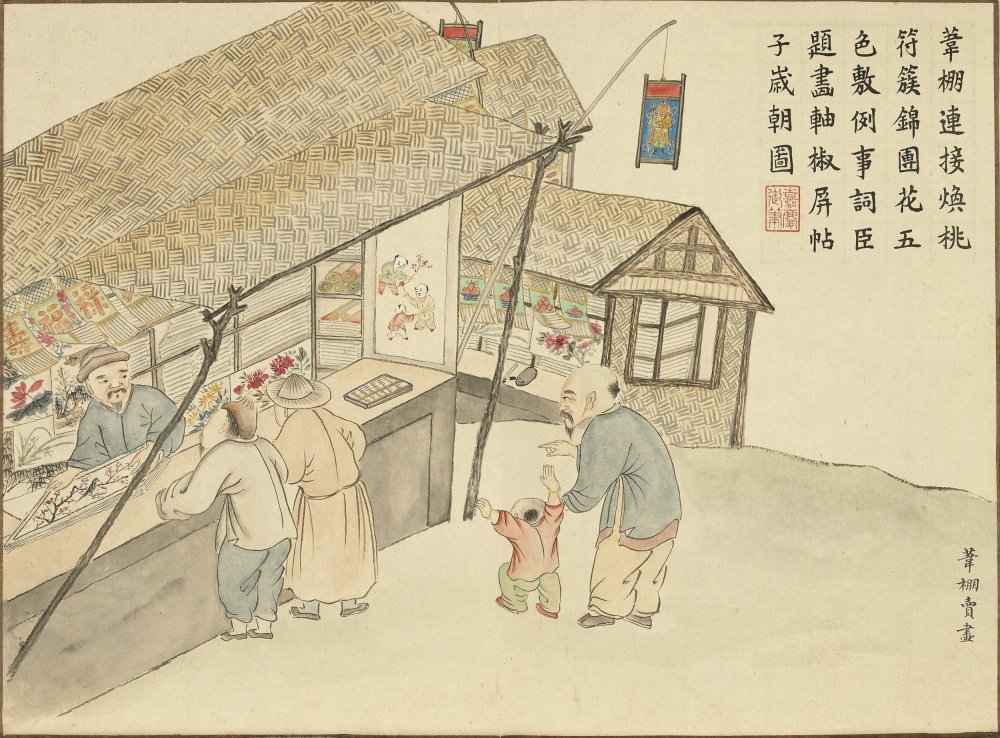 葦棚連接煥桃
符簇錦團花五
色敷例事詞臣
題畫軸椒屏帖
子歲朝圖
嘉慶
御筆
葦棚賣畫
祿
福
壽